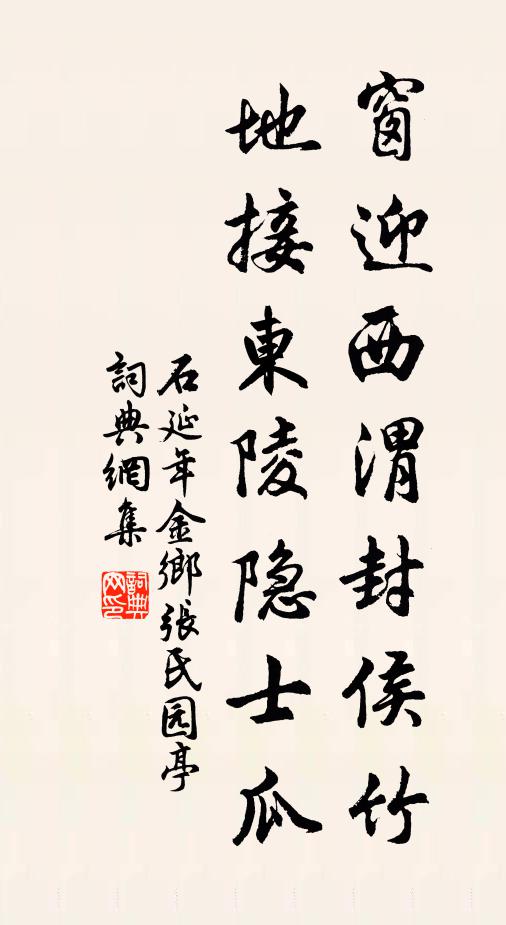 窗迎西渭封侯竹
地接東陵隐士瓜
石延年金鄉張氏园亭
詞典網集
詞典网印